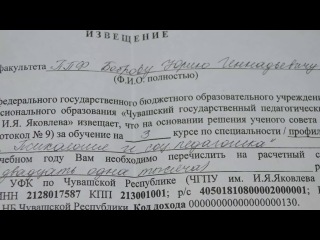 ИЗВЕЩЕНИЕ
факультета ППФ Боброву Юрию Геннадьевичу
(Ф.И.О. полностью)
федерального государственного бюджетного образовательного учреждени
ссионального образования «Чувашский государственный педагогически
И.Я. Яковлева» извещает, что на основании решения ученого совета
отокол № 9) за обучение на 3 курсе по специальности / профил
Психология и соц педагогика
учебном году Вам необходимо перечислить на расчетный с
двадцать одна тысяча)
УФК по Чувашской Республике (ЧГПУ им. И.Я.Яковлева
ИНН 2128017587 КПП 213001001; р/с 40501810800002000001
НБ Чувашской Республики. Код дохода 00000000000000000130.